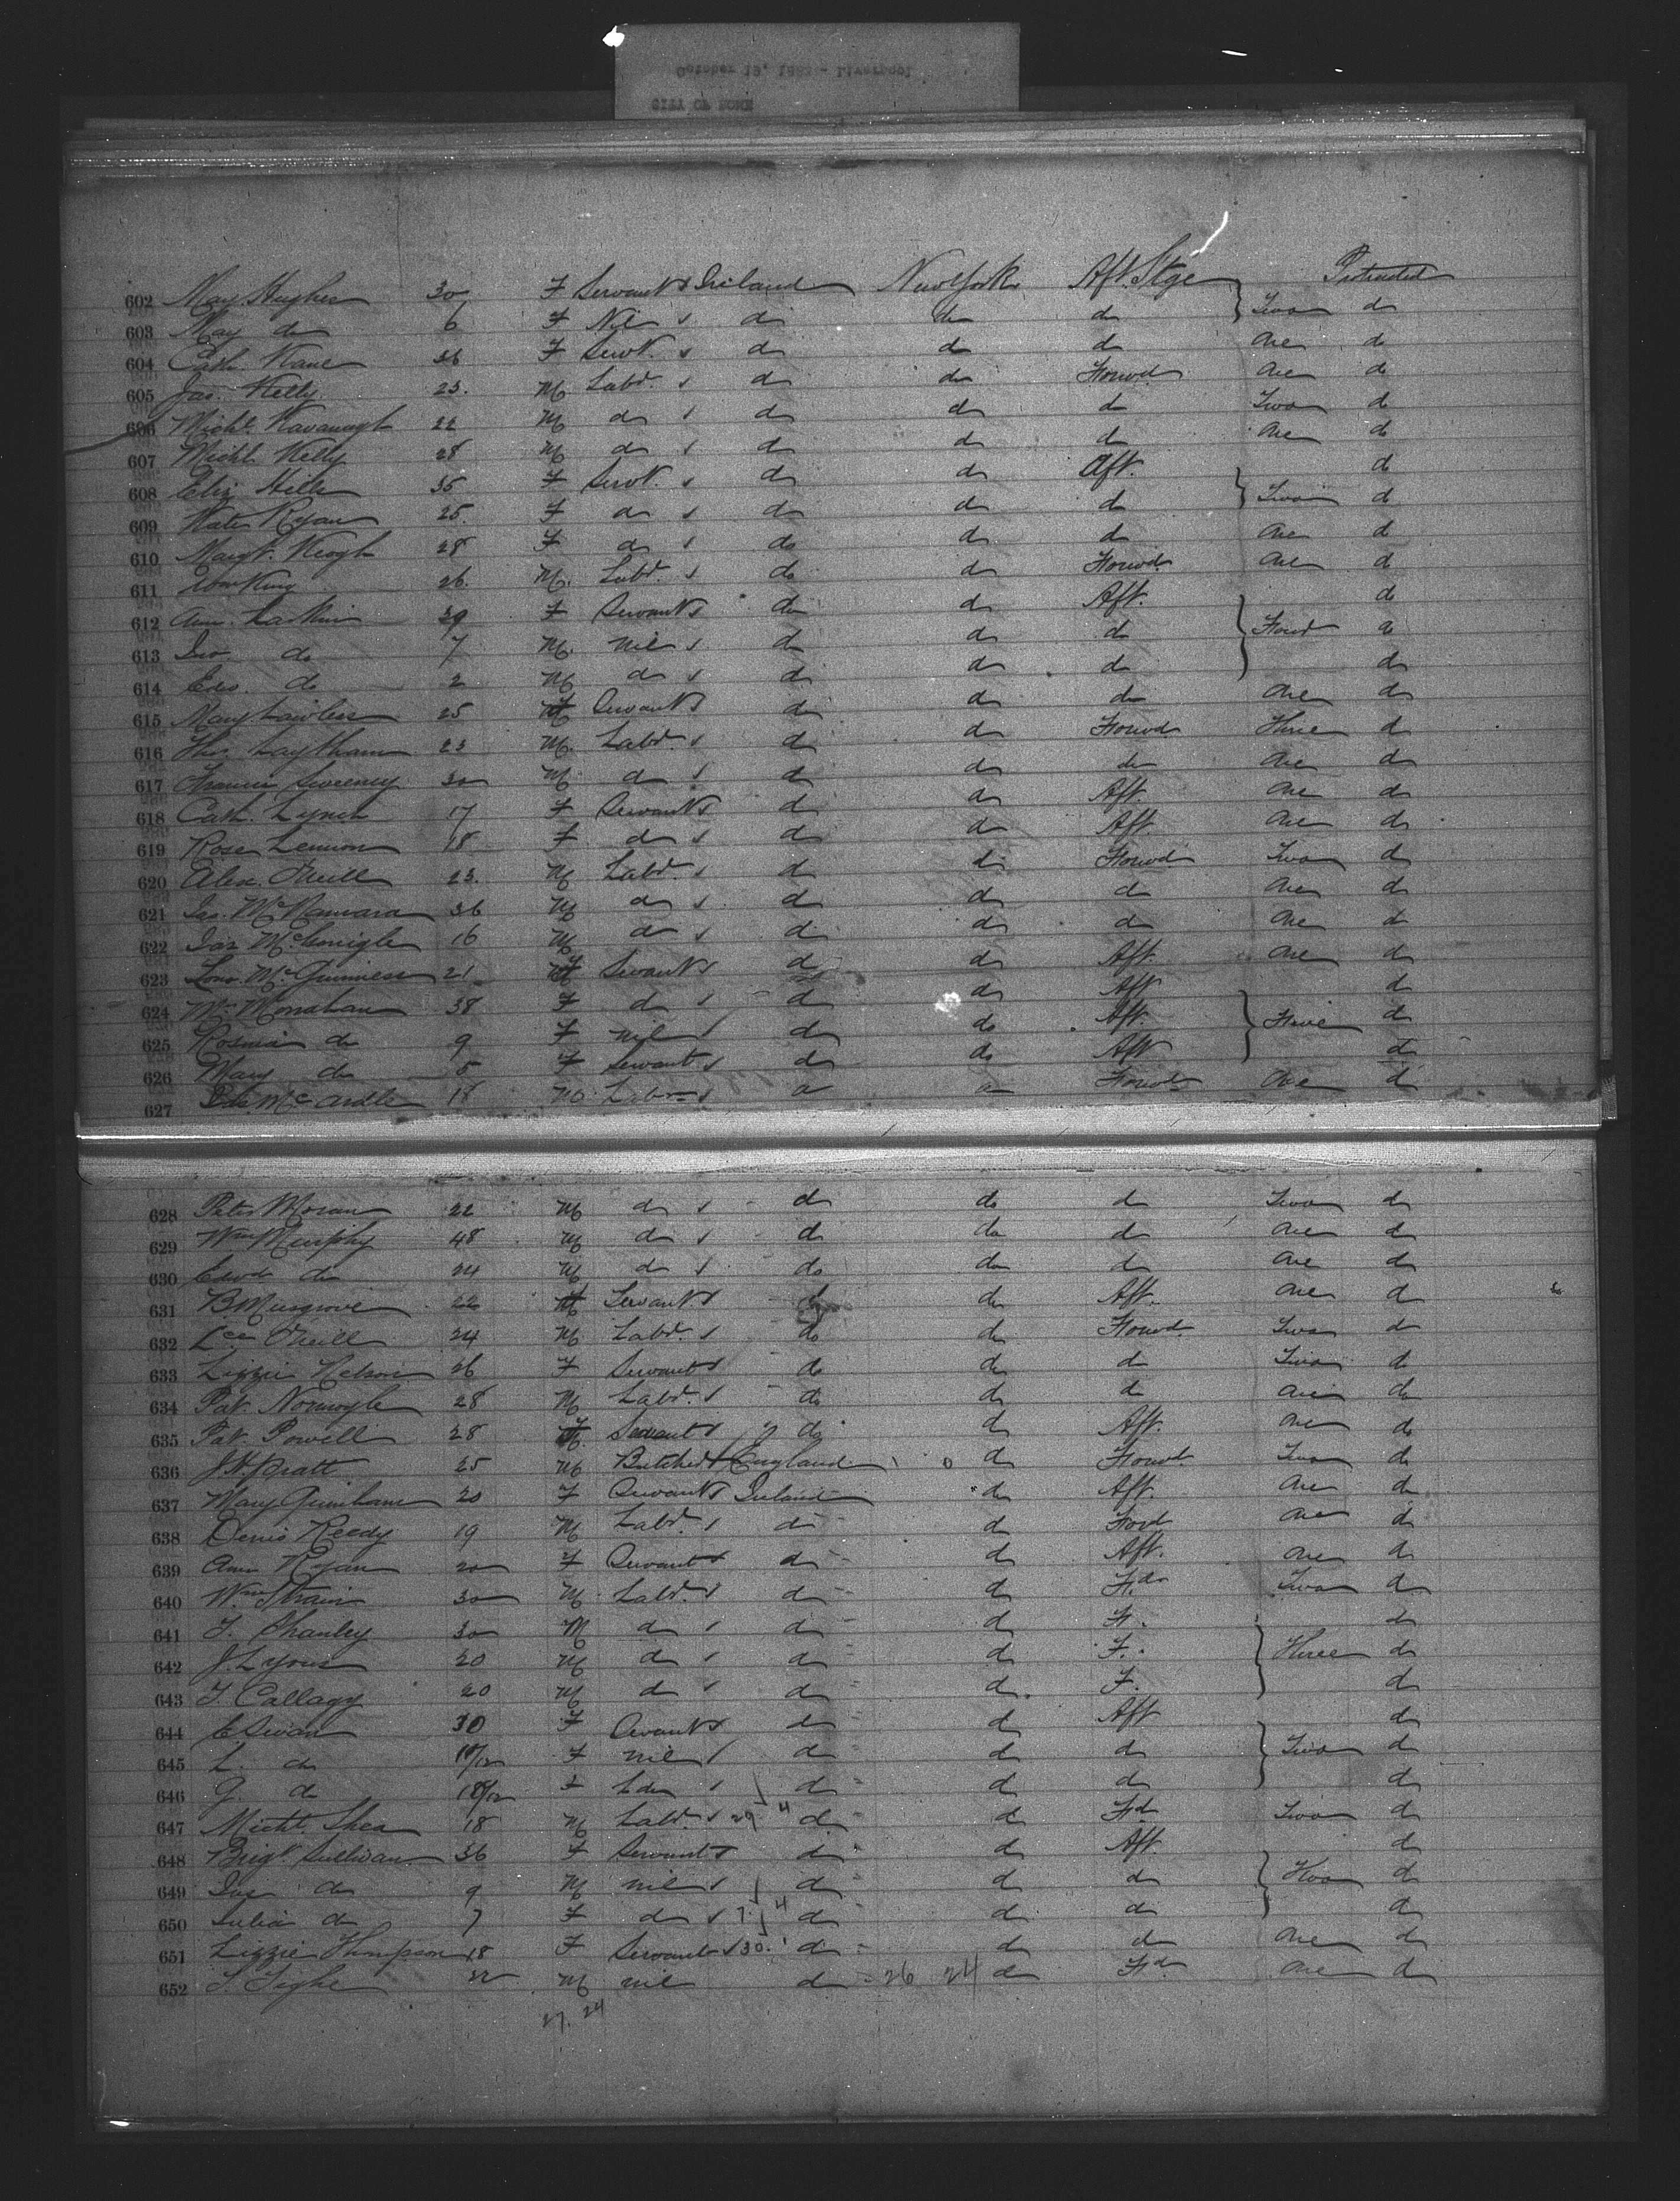 CITY OF ROME
October 19, 188 - Liverpool
602 Mary Hughes 30 F Servant Ireland New York Aft. Stge Protracted
603 May do 6 F Nil do do do Two do
604 Cath. Kane 36 F Servt. do do do One do
605 Jas. Kelly 23. M Labr. do do Forwd. One do
606 Michl. Kavanagh 22 M do do do do Two do
607 Michl. Kelly 28 M do do do do One do
608 Eliz Hill 35 F Servt. do do Aft. do
609 Kate Ryan 25. F do do do do Two do
610 Margt. Keogh 28 F do do do do One do
611 Wm King 26. M. Labr. do do Forwd. One do
612 Ann. Larkin 39 F Servant do do Aft. do
613 Jno. do 7 M. nil do do do Four do
614 Edw. do 2 M do do do do do
615 Mary Lawless 25 F Servant do do do One do
616 Thos. Laytham 23 M. Labr. do do Forwd. Three do
617 Francis Sweeney 30 M. do do do do One do
618 Cath. Lynch 17 F Servant do do Aft. One do
619 Rose Lennon 18 F do do do Aft. One do
620 Alex. O'Neill 23. M Labr. do do Forwd Two do
621 Jas. McNamara 36 M do do do do One do
622 Jas McGonigle 16 M do do do do One do
623 McGuinness 21 F Servant do do Aft. One do
624 Monahan 38 F do do do Aft do
625 do 9 F nil do do Aft. Five do
626 Mary do 5 F Servant do do Aft do
627 McArdle 18 M Labr do do Forwd One do
628 Peter Moran 22 M do do do do Two do
629 Wm Murphy 48 M do do do do One do
630 Edwd do 24 M do do do do One do
631 B. Musgrove 22 F Servant do do Aft. One do
632 O'Neill 24 M Labr. do do Forwd. Two do
633 Lizzie Nelson 26 F Servant do do do Two do
634 Pat. 28 M Labr. do do do One do
635 Pat. Powell 28 F Servant do do Aft. One do
636 J.H. Pratt 25 M Butcher England do Forwd. Two do
637 Mary 20 F Servant Ireland do Aft. One do
638 Denis Reedy 19 M Labr. do do Ford One do
639 Ann Ryan 20 F Servant do do Aft. One do
640 Wm Strain 30 M Labr. do do Fd. Two do
641 T. Shanley 30 M do do do F. do
642 J. Lyons 20 M do do do F. Three do
643 T. Callagy 20 M do do do F. do
644 E. Swan 30 F Servant do do Aft do
645 L. do 10/12 F nil do do do Two do
646 G. do 10/12 F do do do do do
647 Michl. Shea 18 M Labr. 29 4 do do Fd. Two do
648 Brigt. Sullivan 36 F Servant do do Aft. do
649 Jas do 9 M nil do do do Two do
650 Julia do 7 F do 7 4 do do do do
651 Lizzie Thompson 18 F Servant 30. 1 do do do One do
652 T. Tighe 22 M nil do 26 24 do Fd. One do
27. 24